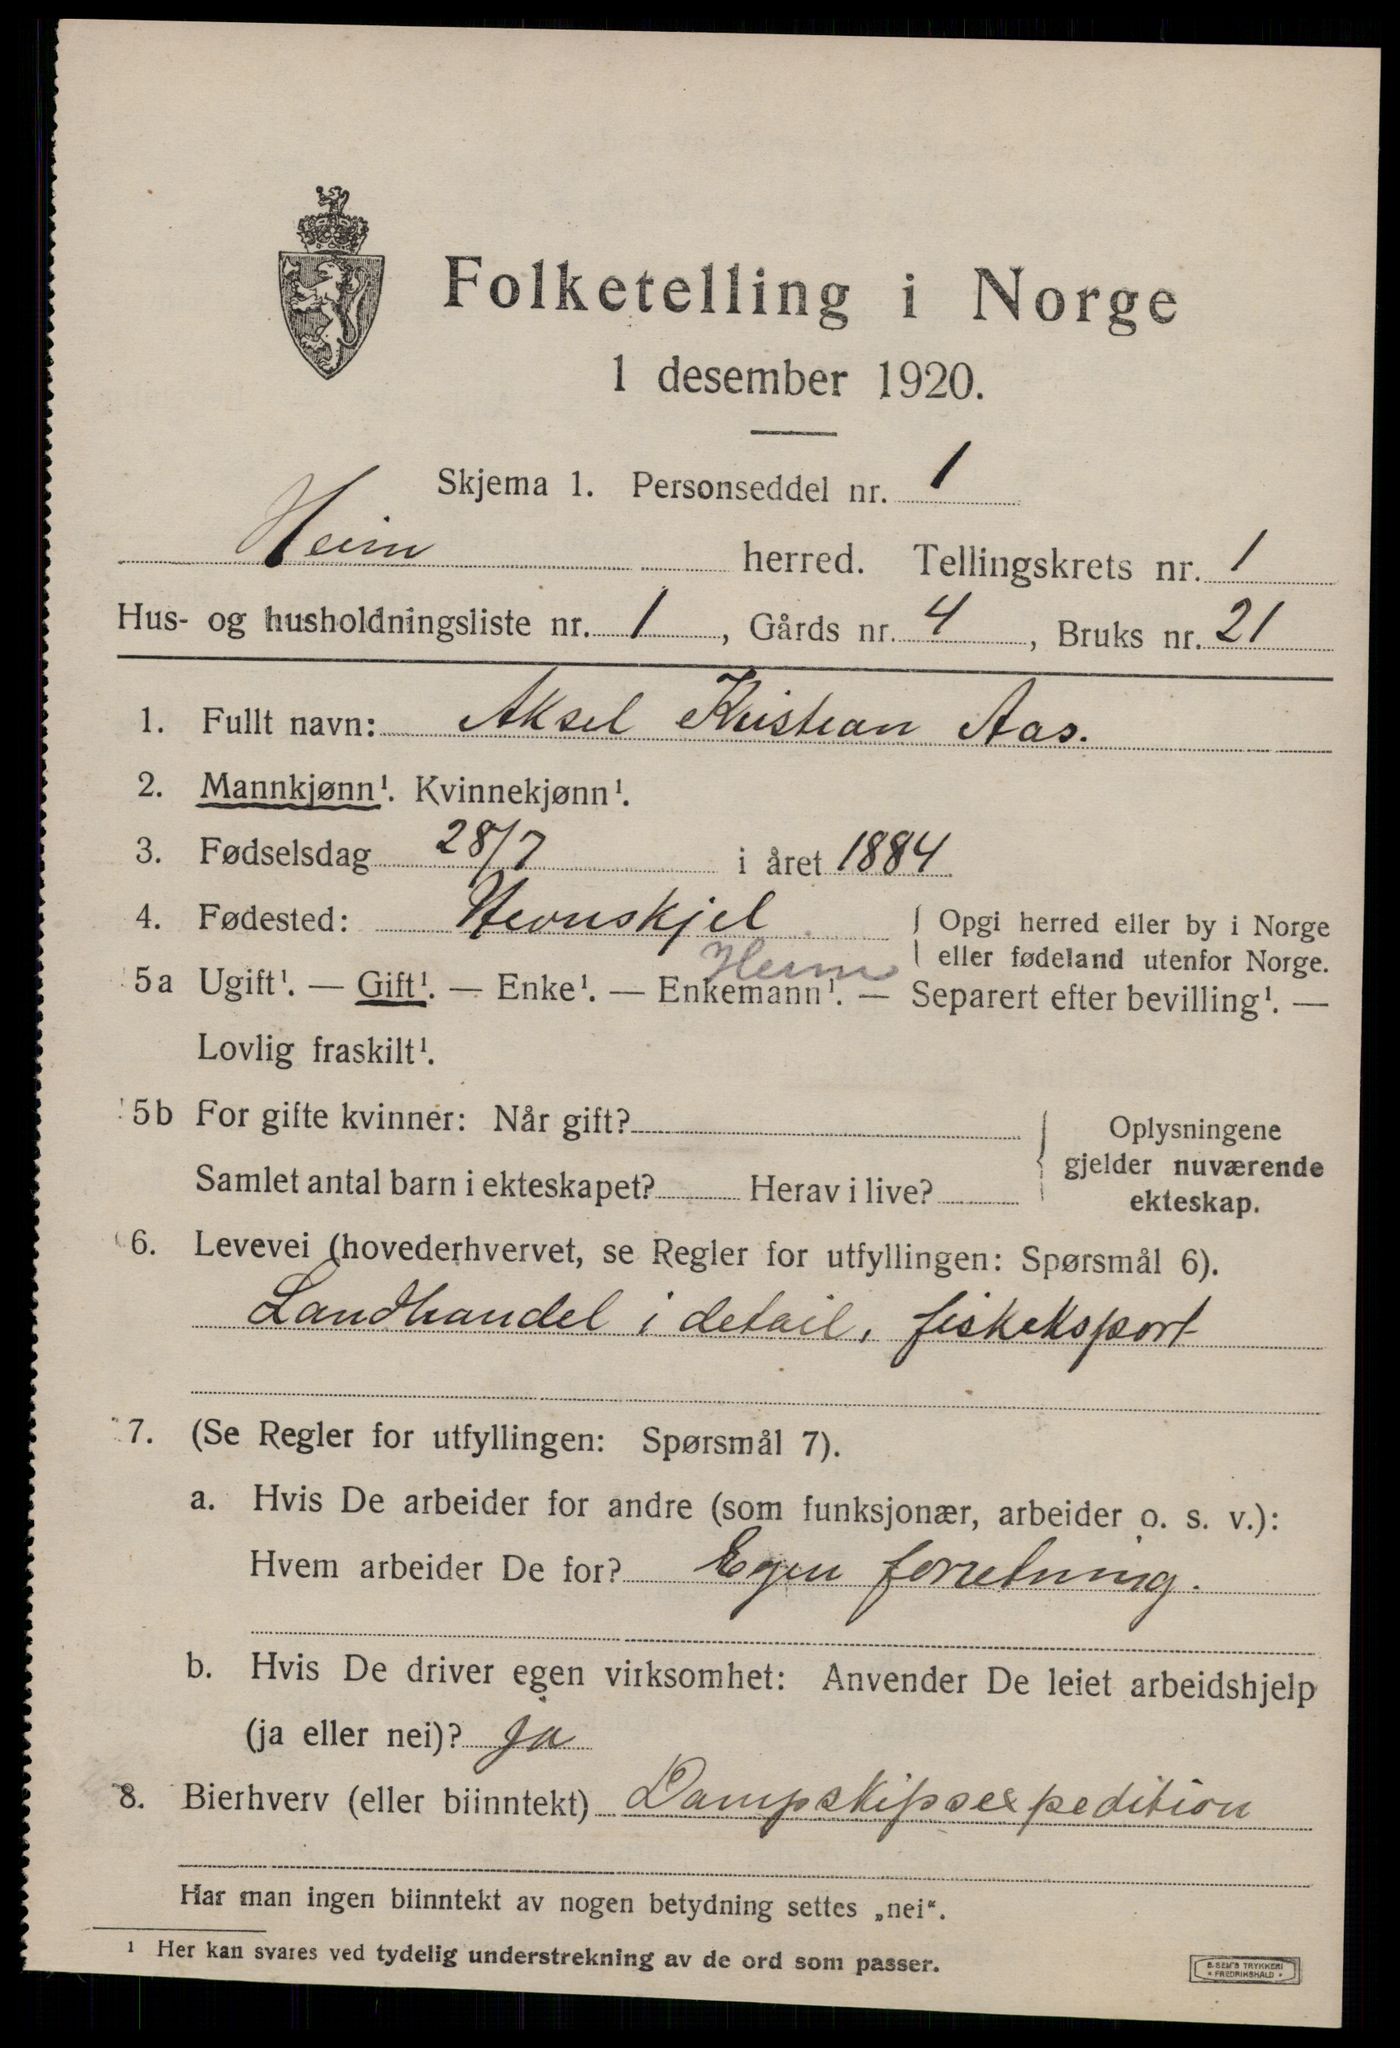 Folketelling i Norge
1 desember 1920.
Skjema 1. Personseddel nr. 1
Heim herred. Tellingskrets nr. 1
Hus- og husholdningsliste nr. 1, Gårds nr. 4, Bruks nr. 21
1. Fullt navn: Aksel Kristian Aas.
2. Mannkjønn¹. Kvinnekjønn¹.
3. Fødselsdag 28/7 i året 1884
4. Fødested: Hevnskjel { Opgi herred eller by i Norge
eller fødeland utenfor Norge.
Heim
5a Ugift¹. — Gift¹. — Enke¹. — Enkemann¹. — Separert efter bevilling¹. —
Lovlig fraskilt¹.
5b For gifte kvinner: Når gift?
Samlet antal barn i ekteskapet? Herav i live?
Oplysningene
gjelder nuværende
ekteskap.
6. Levevei (hovederhvervet, se Regler for utfyllingen: Spørsmål 6).
Landhandel i detail, fiskeksport
7. (Se Regler for utfyllingen: Spørsmål 7).
a. Hvis De arbeider for andre (som funksjonær, arbeider o. s. v.):
Hvem arbeider De for? Egen forretning.
b. Hvis De driver egen virksomhet: Anvender De leiet arbeidshjelp
(ja eller nei)? Ja
8. Bierhverv (eller biinntekt) Dampskipsexpedition
Har man ingen biinntekt av nogen betydning settes „nei".
¹ Her kan svares ved tydelig understrekning av de ord som passer.
E. SEM'S TRYKKERI
* FREDRIKSHALD *